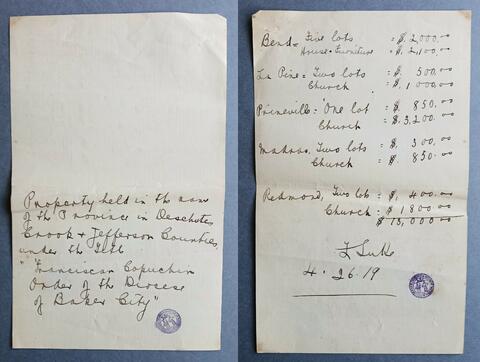 Property held in the name
of the Province in Deschutes
Crook & Jefferson Counties,
under the title
"Franciscan Capuchin
Order of the Diocese
of Baker City"
Bend = Five lots = $. 2,000.00
House + Furniture = $. 2,100.00
La Pine = Two lots = $. 500.00
Church = $. 1000.00
Prineville = One lot = $. 850.00
Church = $. 3,200.00
Madras, Two lots = $. 300.00
Church = $. 850.00
Redmond, Two lots = $. 400.00
Church = $. 1800.00
$ 13,000.00
F Luke
4 . 26. 19